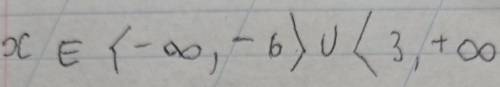 x ∈ ⟨-∞, -6⟩ ∪ ⟨3, +∞